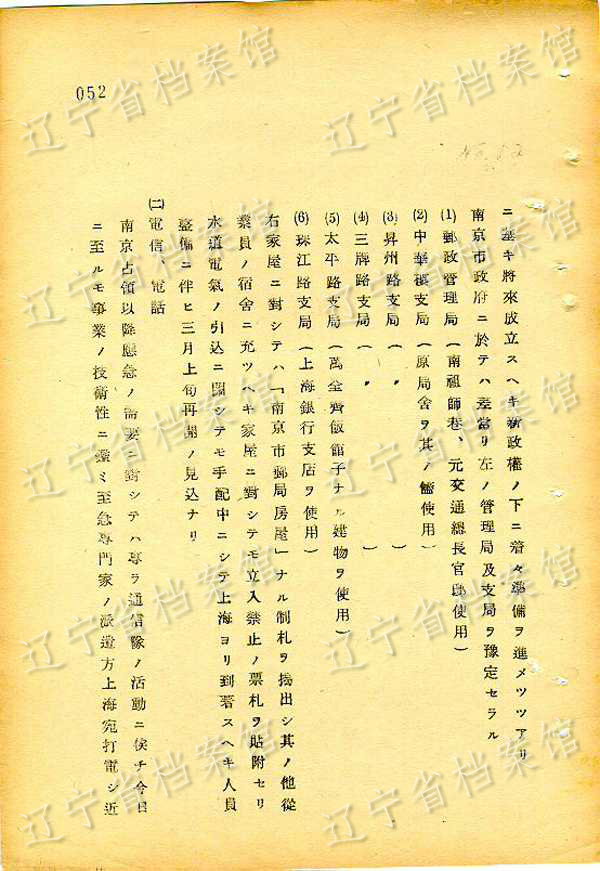 052
ニ基キ將來成立スヘキ新政權ノ下ニ着々準備ヲ進メツツアリ
南京市政府ニ於テハ差當リ左ノ管理局及支局ヲ豫定セラル
(1) 郵政管理局(南祖師巷、元交通總長官邸使用)
(2) 中華樓支局(原局舍ヲ其ノ儘使用)
(3) 昇州路支局(〃)
(4) 三牌路支局(〃)
(5) 太平路支局(萬全齊飯館子ナル建物ヲ使用)
(6) 珠江路支局(上海銀行支店ヲ使用)
右家屋ニ對シテハ「南京市郵局房屋」ナル制札ヲ揭出シ其ノ他從
業員ノ宿舍ニ充ツヘキ家屋ニ對シテモ立入禁止ノ票札ヲ貼附セリ
水道電氣ノ引込ニ關シテモ手配中ニシテ上海ヨリ到著スヘキ人員
整備ニ伴ヒ三月上旬再開ノ見込ナリ
(二) 電信、電話
南京占領以降應急ノ需要ニ對シテハ專ラ通信隊ノ活動ニ俟チ今日
ニ至ルモ事業ノ技術性ニ鑑ミ至急專門家ノ派遣方上海宛打電シ近
辽宁省档案馆
辽宁省档案馆
辽宁省档案馆
辽宁省档案馆
辽宁省档案馆
辽宁省档案馆
辽宁省档案馆
辽宁省档案馆
辽宁省档案馆
辽宁省档案馆